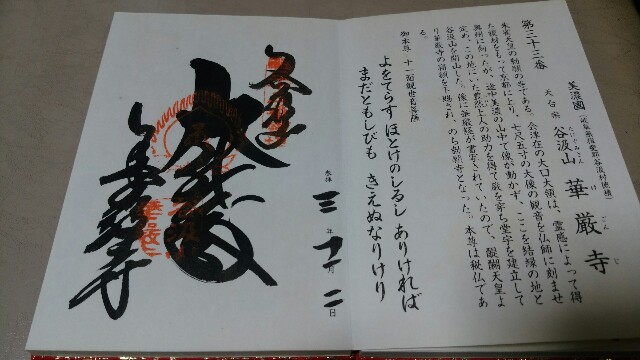 第三十三番
美濃國（岐阜県揖斐郡谷汲村徳積）
天台宗 谷汲山 華厳寺
たにぐみさん け ごん じ
朱雀天皇の勅願の寺である。会津在の大口大領は、霊感によって得
た榎材をもって京都により、七尺五寸の大像の観音を仏師に刻ませ
奥州に向ったが、途中美濃の山中で像が動かず、ここを結縁の地と
定め、この地にいた豊然上人の助力を得て巌を穿ち堂宇を建立して
谷汲山を開山した。後に華厳経が書写されていたので、醍醐天皇よ
り華厳寺の扁額を下賜され、のち勅願寺となった。本尊は秘仏であ
る。
御本尊 十一面観世音菩薩
よをてらす ほとけのしるし ありければ
まだともしびも きえぬなりけり
奉拝 三年 十一月 二日
華厳寺